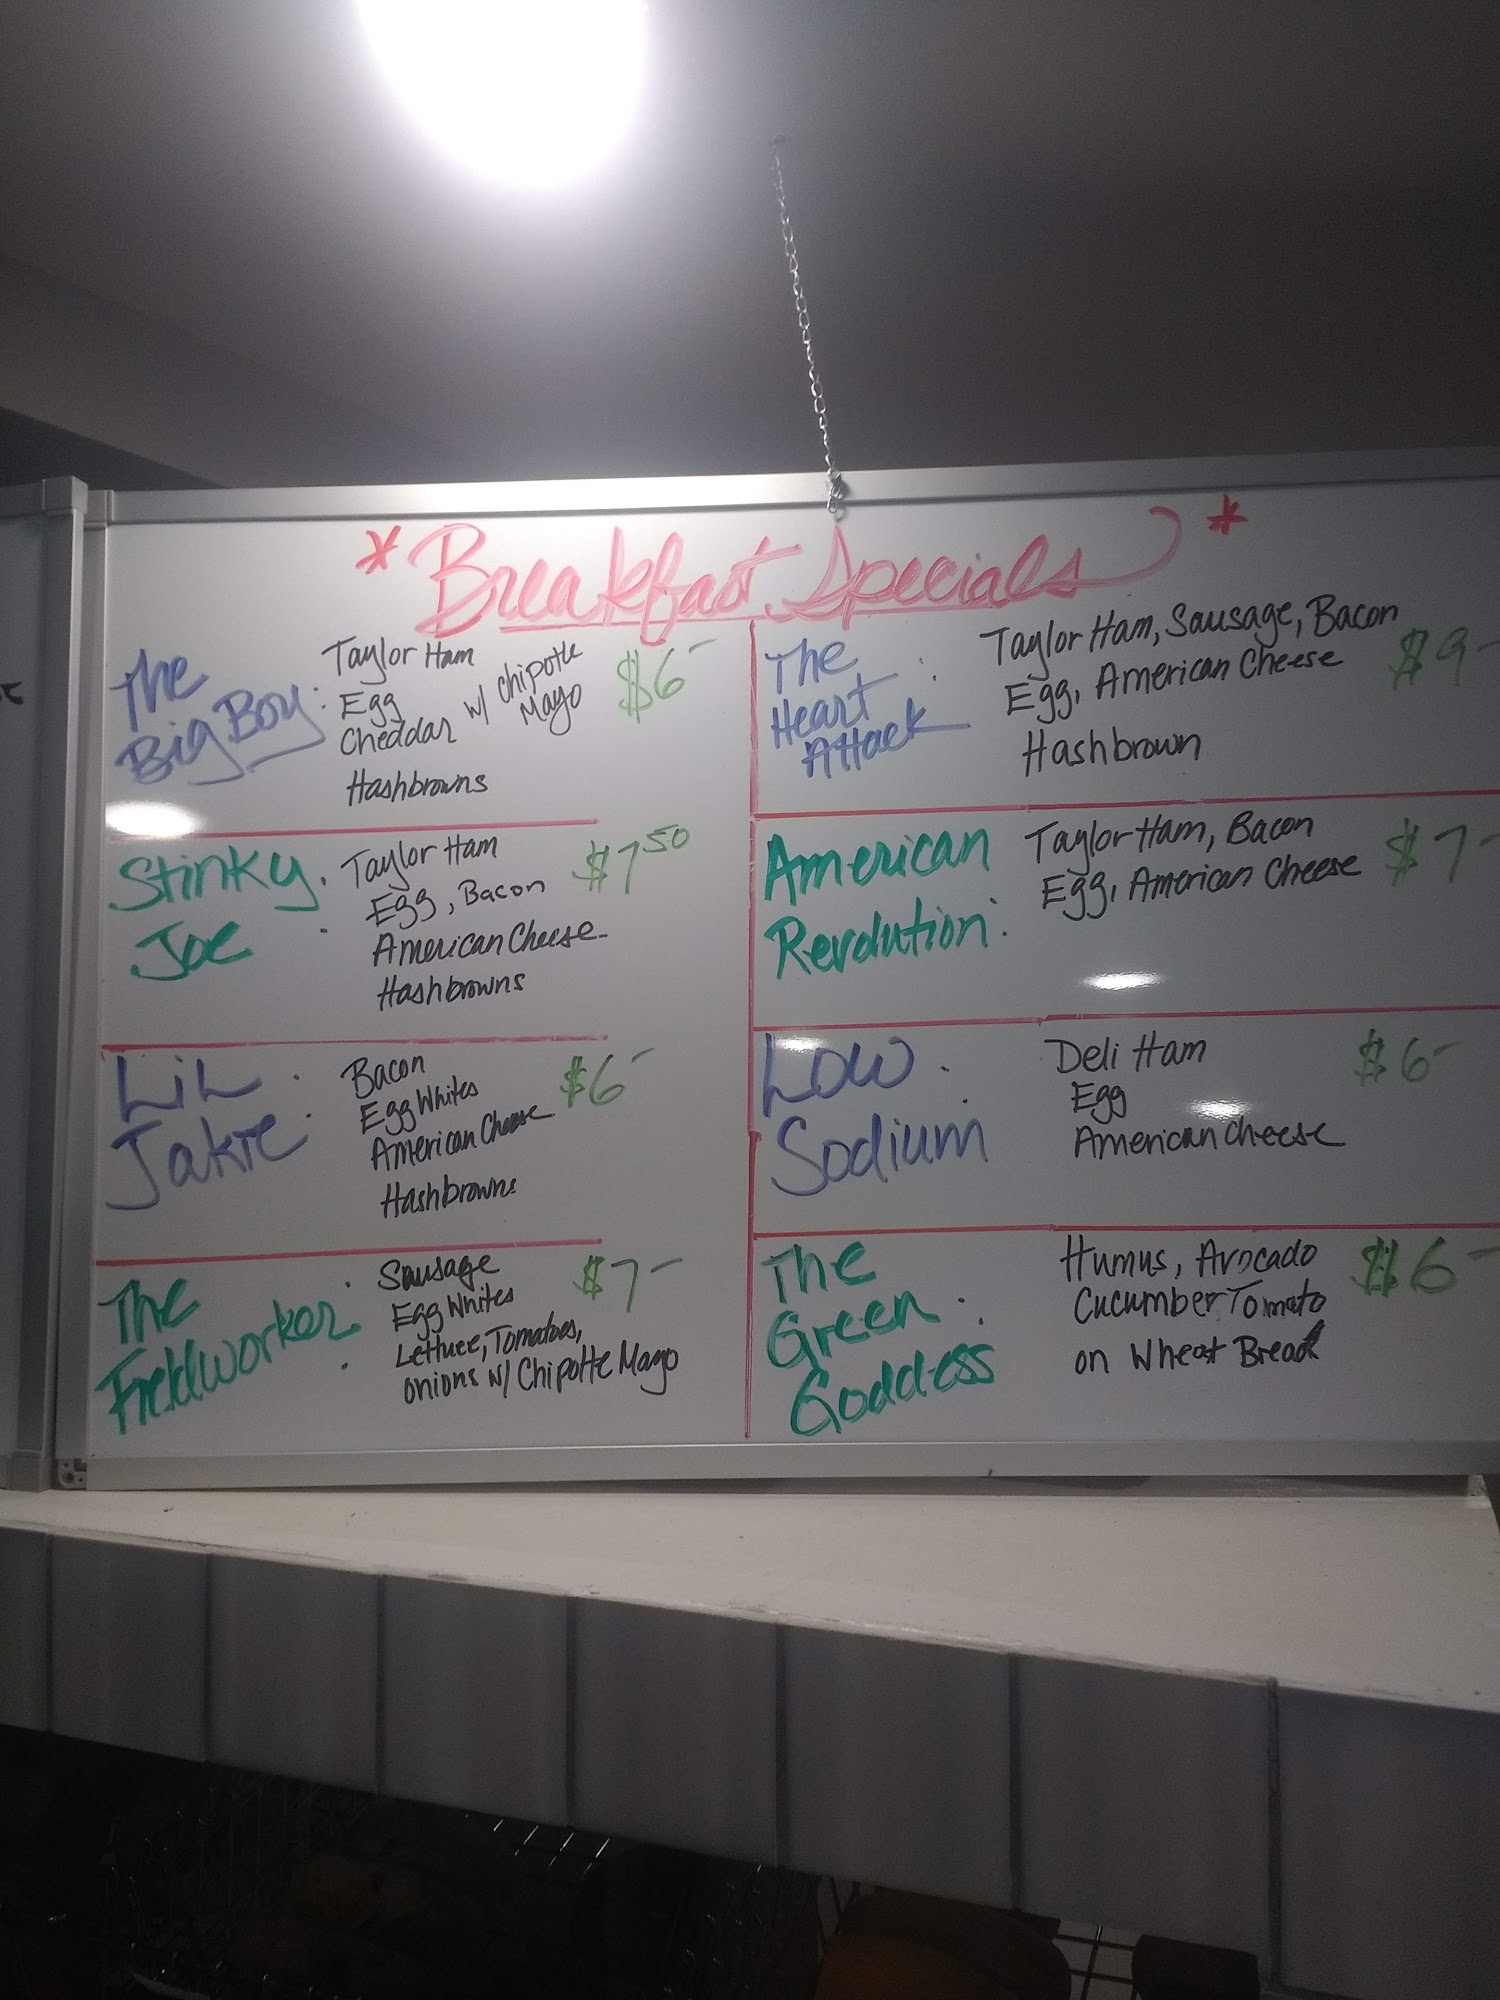 * Breakfast Specials *
The
Big Boy:
Taylor Ham
Egg
Cheddar w/ Chipotle
Mayo
Hashbrowns
$6-
Stinky
Joe :
Taylor Ham
Egg, Bacon
American Cheese
Hashbrowns
$7 50
Lil
Jakie :
Bacon
Egg Whites
American Cheese
Hashbrowns
$6-
The
Fieldworker :
Sausage
Egg Whites
Lettuce, Tomatoes,
onions w/ Chipotte Mayo
$7-
The
Heart
Attack :
Taylor Ham, Sausage, Bacon
Egg, American Cheese
Hashbrown
$9-
American
Revolution:
Taylor Ham, Bacon
Egg, American Cheese
$7-
Low
Sodium :
Deli Ham
Egg
American Cheese
$6-
The
Green
Goddess :
Humus, Avocado
Cucumber Tomato
on Wheat Bread
$6-